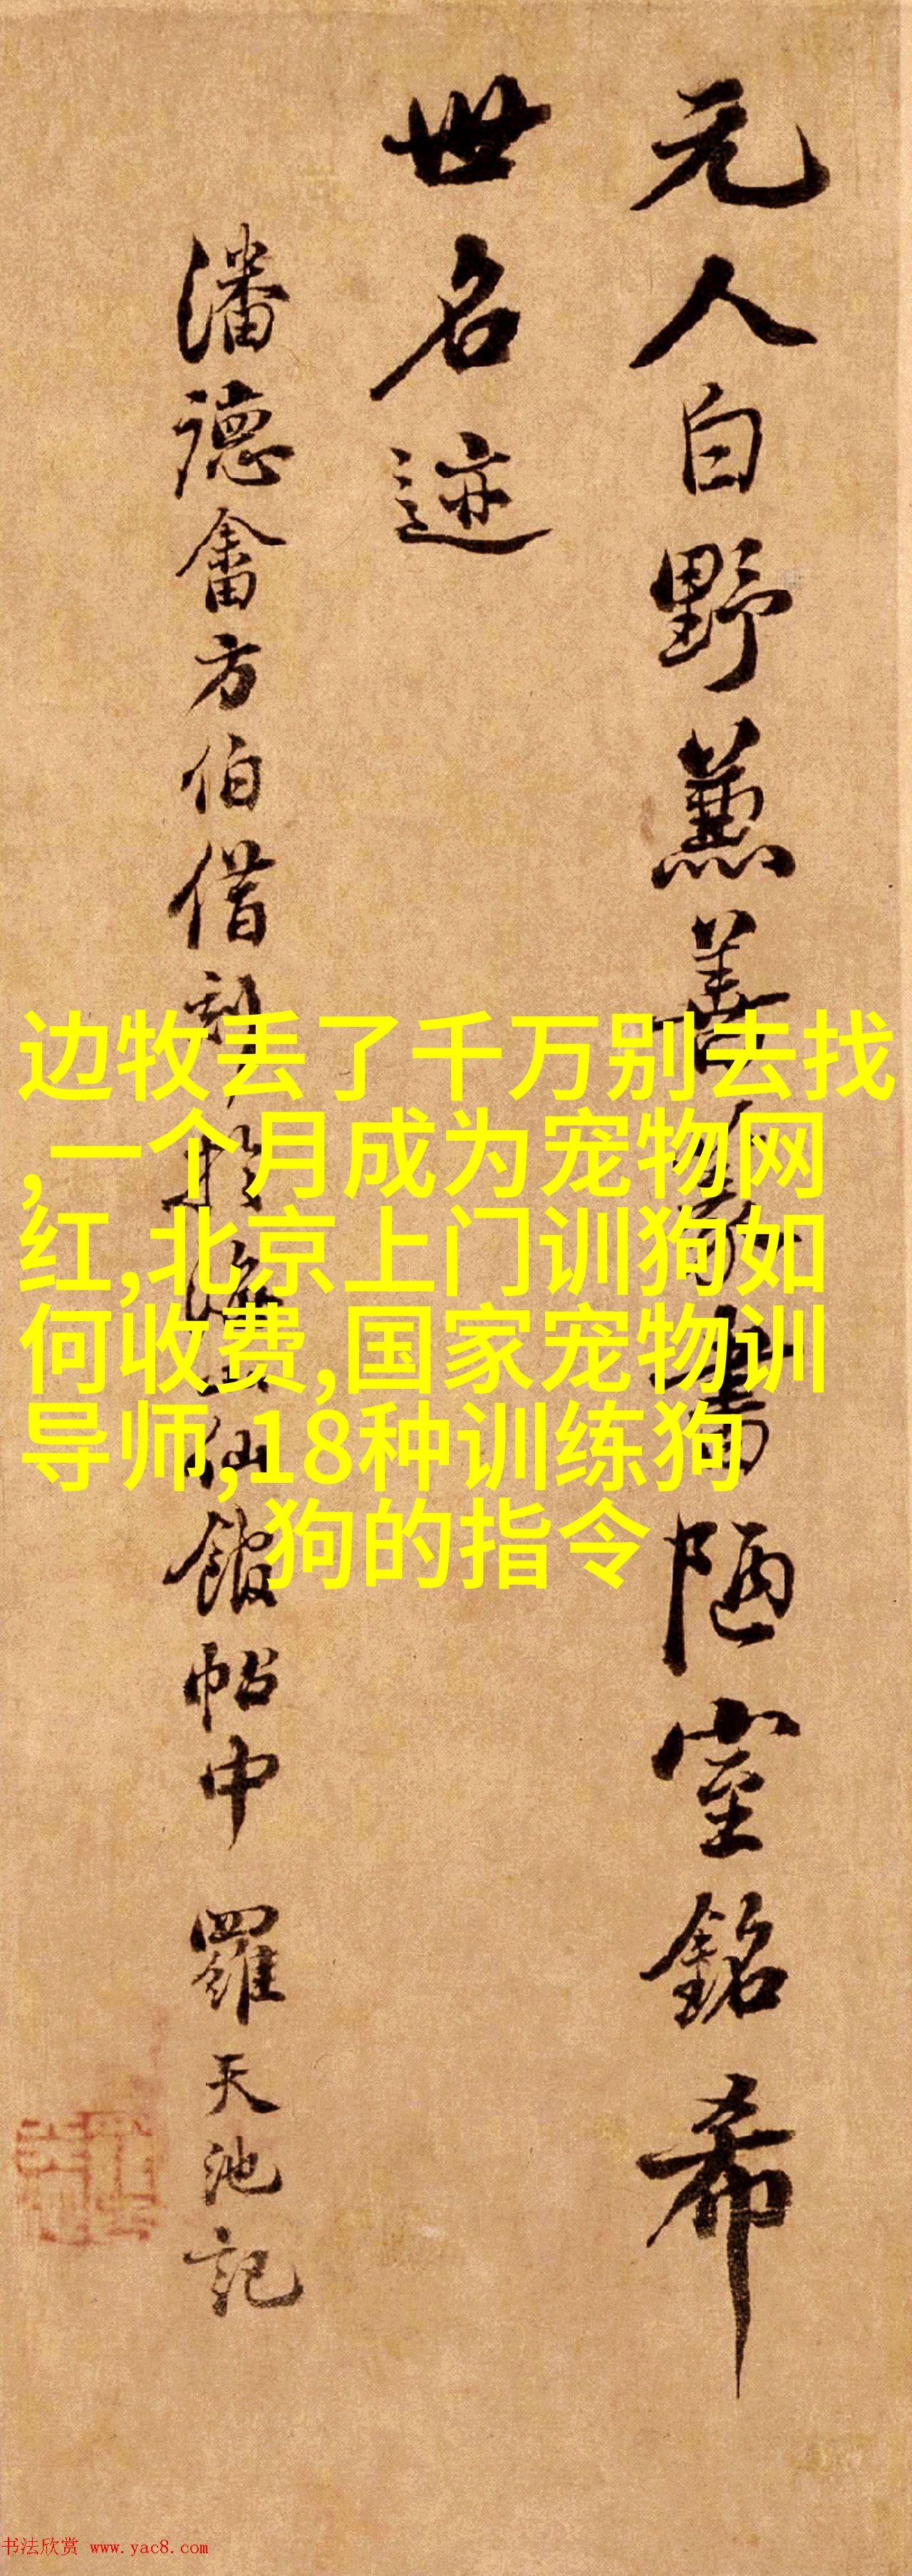 元人白野蕙善篆書陋室銘希
世名迹
潘德畬方伯借刻於海山仙館帖中 羅天池記
边牧丢了千万别去找
,一个月成为宠物网
红,北京上门训狗如
何收费,国家宠物训
导师,18种训练狗
狗的指令
书法欣赏 www.yac8.com